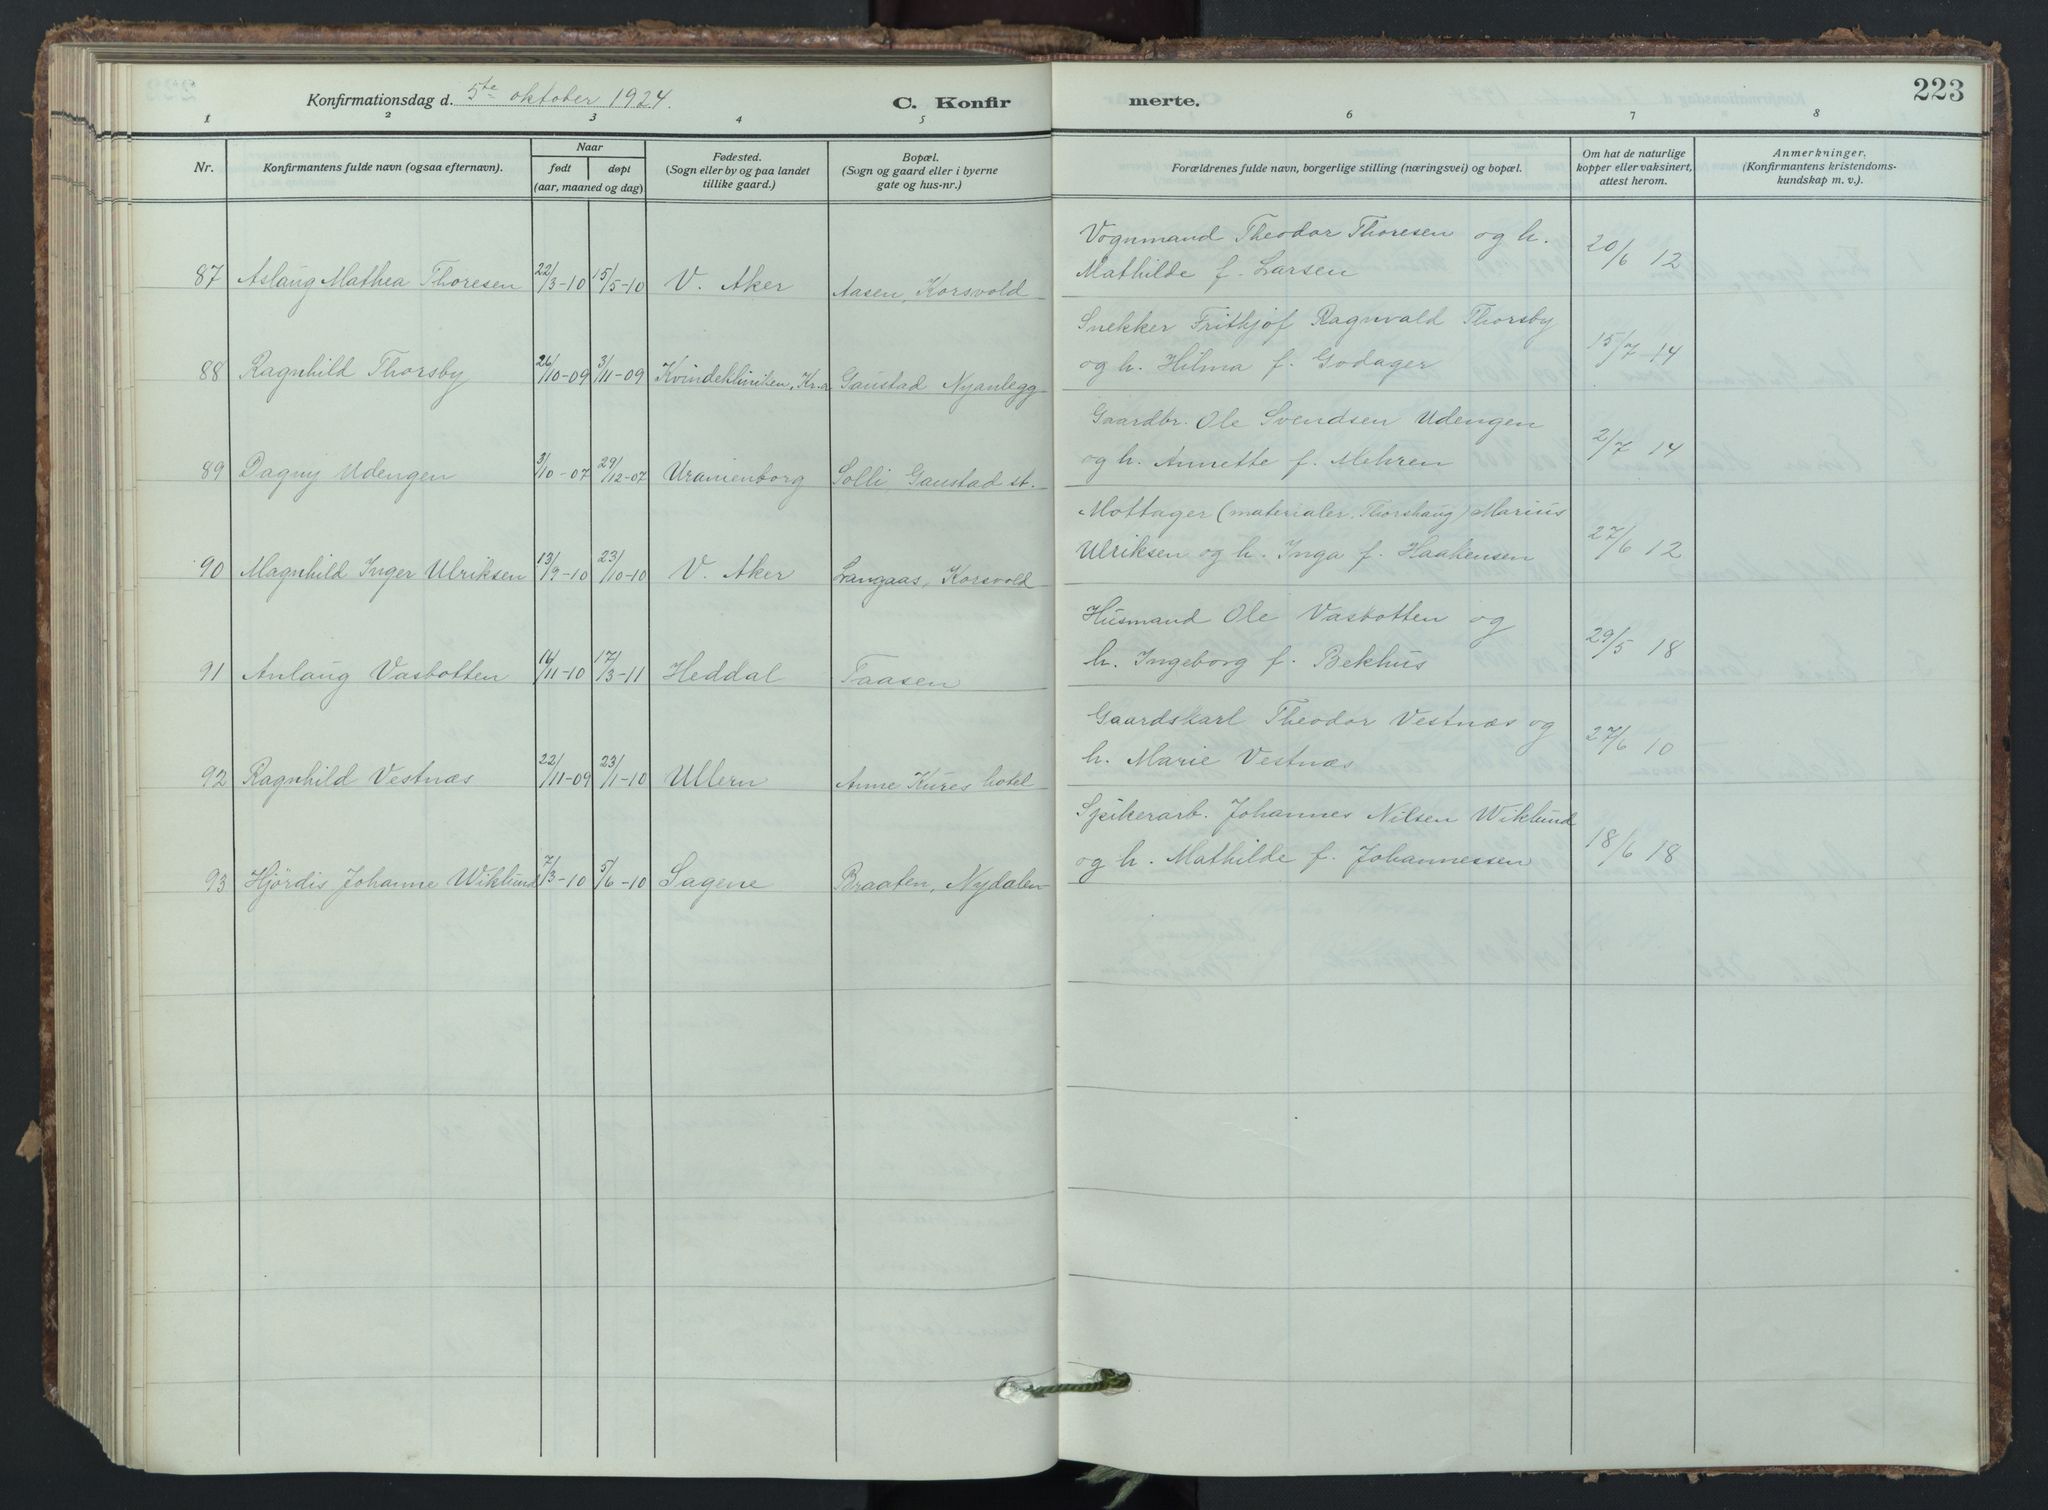 223
Konfirmationsdag d. 5te oktober 1924.
C. Konfir merte.
1 2 3 4 5 6 7 8
Nr.
Konfirmantens fulde navn (ogsaa efternavn).
Naar
født døpt
(aar, maaned og dag)
Fødested.
(Sogn eller by og paa landet
tillike gaard.)
Bopæl.
(Sogn og gaard eller i byerne
gate og hus-nr.)
Forældrenes fulde navn, borgerlige stilling (næringsvei) og bopæl.
Om hat de naturlige
kopper eller vaksinert,
attest herom.
Anmerkninger.
(Konfirmantens kristendoms-
kundskap m. v.).
Vognmand Theodor Thoresen og h.
87 Aslaug Mathea Thoresen 22/3-10 15/5-10 V. Aker Aasen, Korsvold Mathilde f. Larsen 20/6 12
Snekker Frithjof Ragnvald Thorsby
88 Ragnhild Thorsby 26/10-09 3/11-09 Kvindekliniken, Kr.a Gaustad Nyanlegg og h. Hilma f. Godager 15/7 14
Gaardbr. Ole Svendsen Udengen
89 Dagny Udengen 3/10-07 29/12-07 Uranienborg Solli, Gaustad st. og h. Annette f. Mehren 2/7 14
Mottager (materialer, Thorshaug) Marius
90 Magnhild Inger Ulriksen 13/9-10 23/10-10 V. Aker Langaas, Korsvold Ulriksen og h. Inga f. Haakensen 27/6 12
Husmand Ole Vasbotten og
91 Anlaug Vasbotten /11-10 17/3-11 Heddal Taasen h. Ingeborg f. Bekhus 29/5 18
Gaardskarl Theodor Vestnæs og
92 Ragnhild Vestnæs 22/11-09 23/1-10 Ullern Anne Kures hotel h. Marie Vestnæs 27/6 10
Spikerarb. Johannes Nilsen Wiklund
93 Hjördis Johanne Wiklund 7/3-10 5/6-10 Sagene Braaten, Nydalen og h. Mathilde f. Johannessen 18/6 18